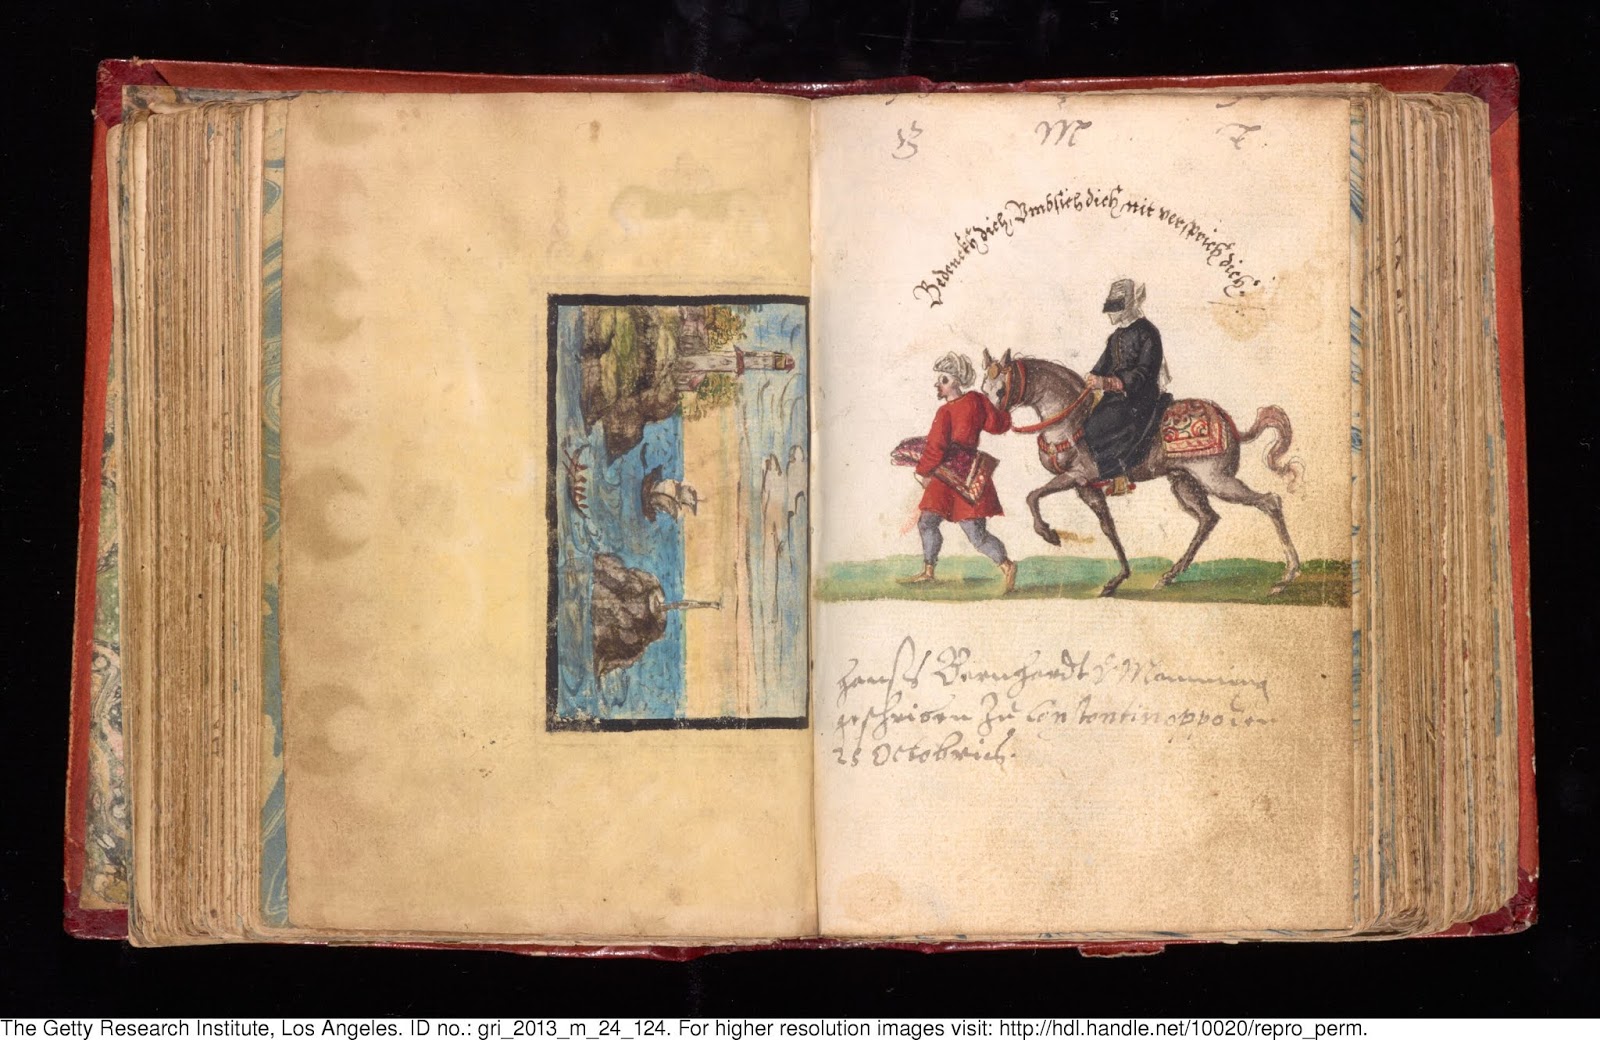 B M Z
Bedenckh dich, Vmbsich dich, nit versprich dich.
Hanß Bernhardt
geschriben Zu Constantinoppolen
25 Octobrich.
The Getty Research Institute, Los Angeles. ID no.: gri_2013_m_24_124. For higher resolution images visit: http://hdl.handle.net/10020/repro_perm.